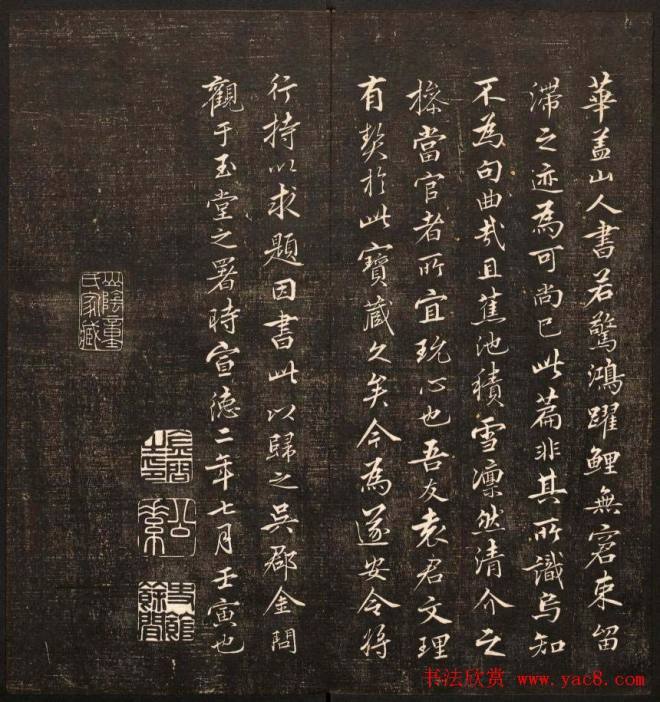 華盖山人書若驚鴻躍鯉無窘束留
滯之迹為可尚已此篇非其所識烏知
不為句曲哉且蕉池積雪凛然清介之
操當官者所宜玩心也吾友袁君文理
有契於此寶藏久矣今為遂安令将
行持以求題因書此以歸之吳郡金問
觀于玉堂之署時宣德二年七月壬寅也
公素
山陰童
氏家藏
书法欣赏 www.yac8.com